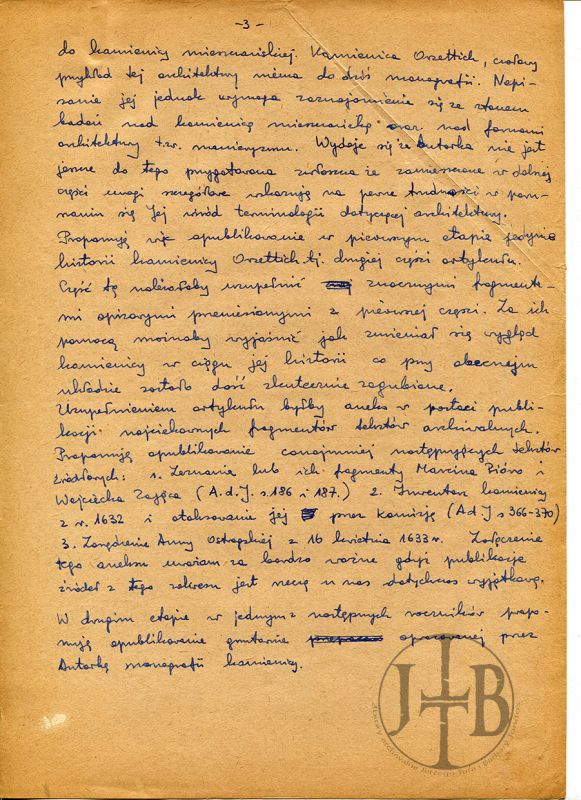 -3-
do kamienicy mieszczańskiej. Kamienica Orsettich, czołowy
przykład tej architektury niema do dziś monografii. Napi-
sanie jej jednak wymaga zaznajomienie się ze stanem
badań nad kamienicą mieszczańską oraz nad formami
architektury t.zw. manieryzmu. Wydaje się że autorka nie jest
jeszcze do tego przygotowana zwłaszcza że zamieszczone w dalszej
części uwagi szczegółowe wskazują na pewne trudności w poru-
szaniu się Jej wśród terminologii dotyczącej architektury.
Proponuję więc opublikowanie w pierwszym etapie jedynie
historii kamienicy Orsettich t.j. drugiej części artykułu.
Część tę należałoby uzupełnić znacznymi fragmenta-
mi opisowymi przeniesionymi z pierwszej części. Za ich
pomocą możnaby wyjaśnić jak zmieniał się wygląd
kamienicy w ciągu jej historii co przy obecnym
układzie zostało dość skutecznie zagubione.
Uzupełnieniem artykułu byłby aneks w postaci publi-
kacji najciekawszych fragmentów tekstów archiwalnych.
Proponuję opublikowanie conajmniej następujących tekstów
źródłowych: 1. Zeznania lub ich fragmenty Marcina Pióro i
Wojciecha Zająca (A.d.J. s.186 i 187.) 2. Inwentarz kamienicy
z r. 1632 i otaksowanie jej przez komisję (A.d.J s 366-370)
3. Zarządzenie Anny Ostrogskiej z 16 kwietnia 1633 r. Załączenie
tego aneksu uważam za bardzo ważne gdyż publikacje
źródeł z tego zakresu jest rzeczą u nas dotychczas wyjątkową.
W drugim etapie w jednym z następnych roczników propo-
nuję opublikowanie gruntownie opracowanej przez
Autorkę monografii kamienicy.
JTB